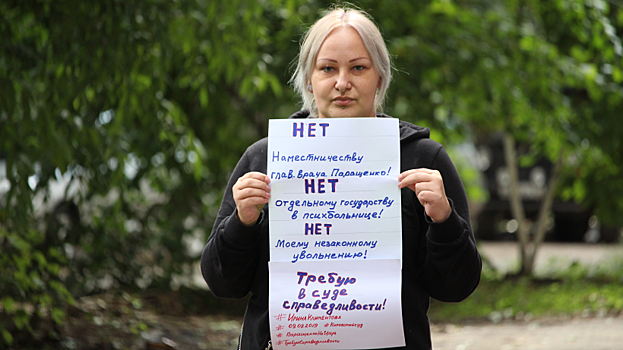 НЕТ
Наместничеству
глав. врача Паращенко!
НЕТ
отдельному государству
в психбольнице!
НЕТ
Моему незаконному
увольнению!
Требую
в суде
справедливости!
#
#
#
#Требуюсправедливости